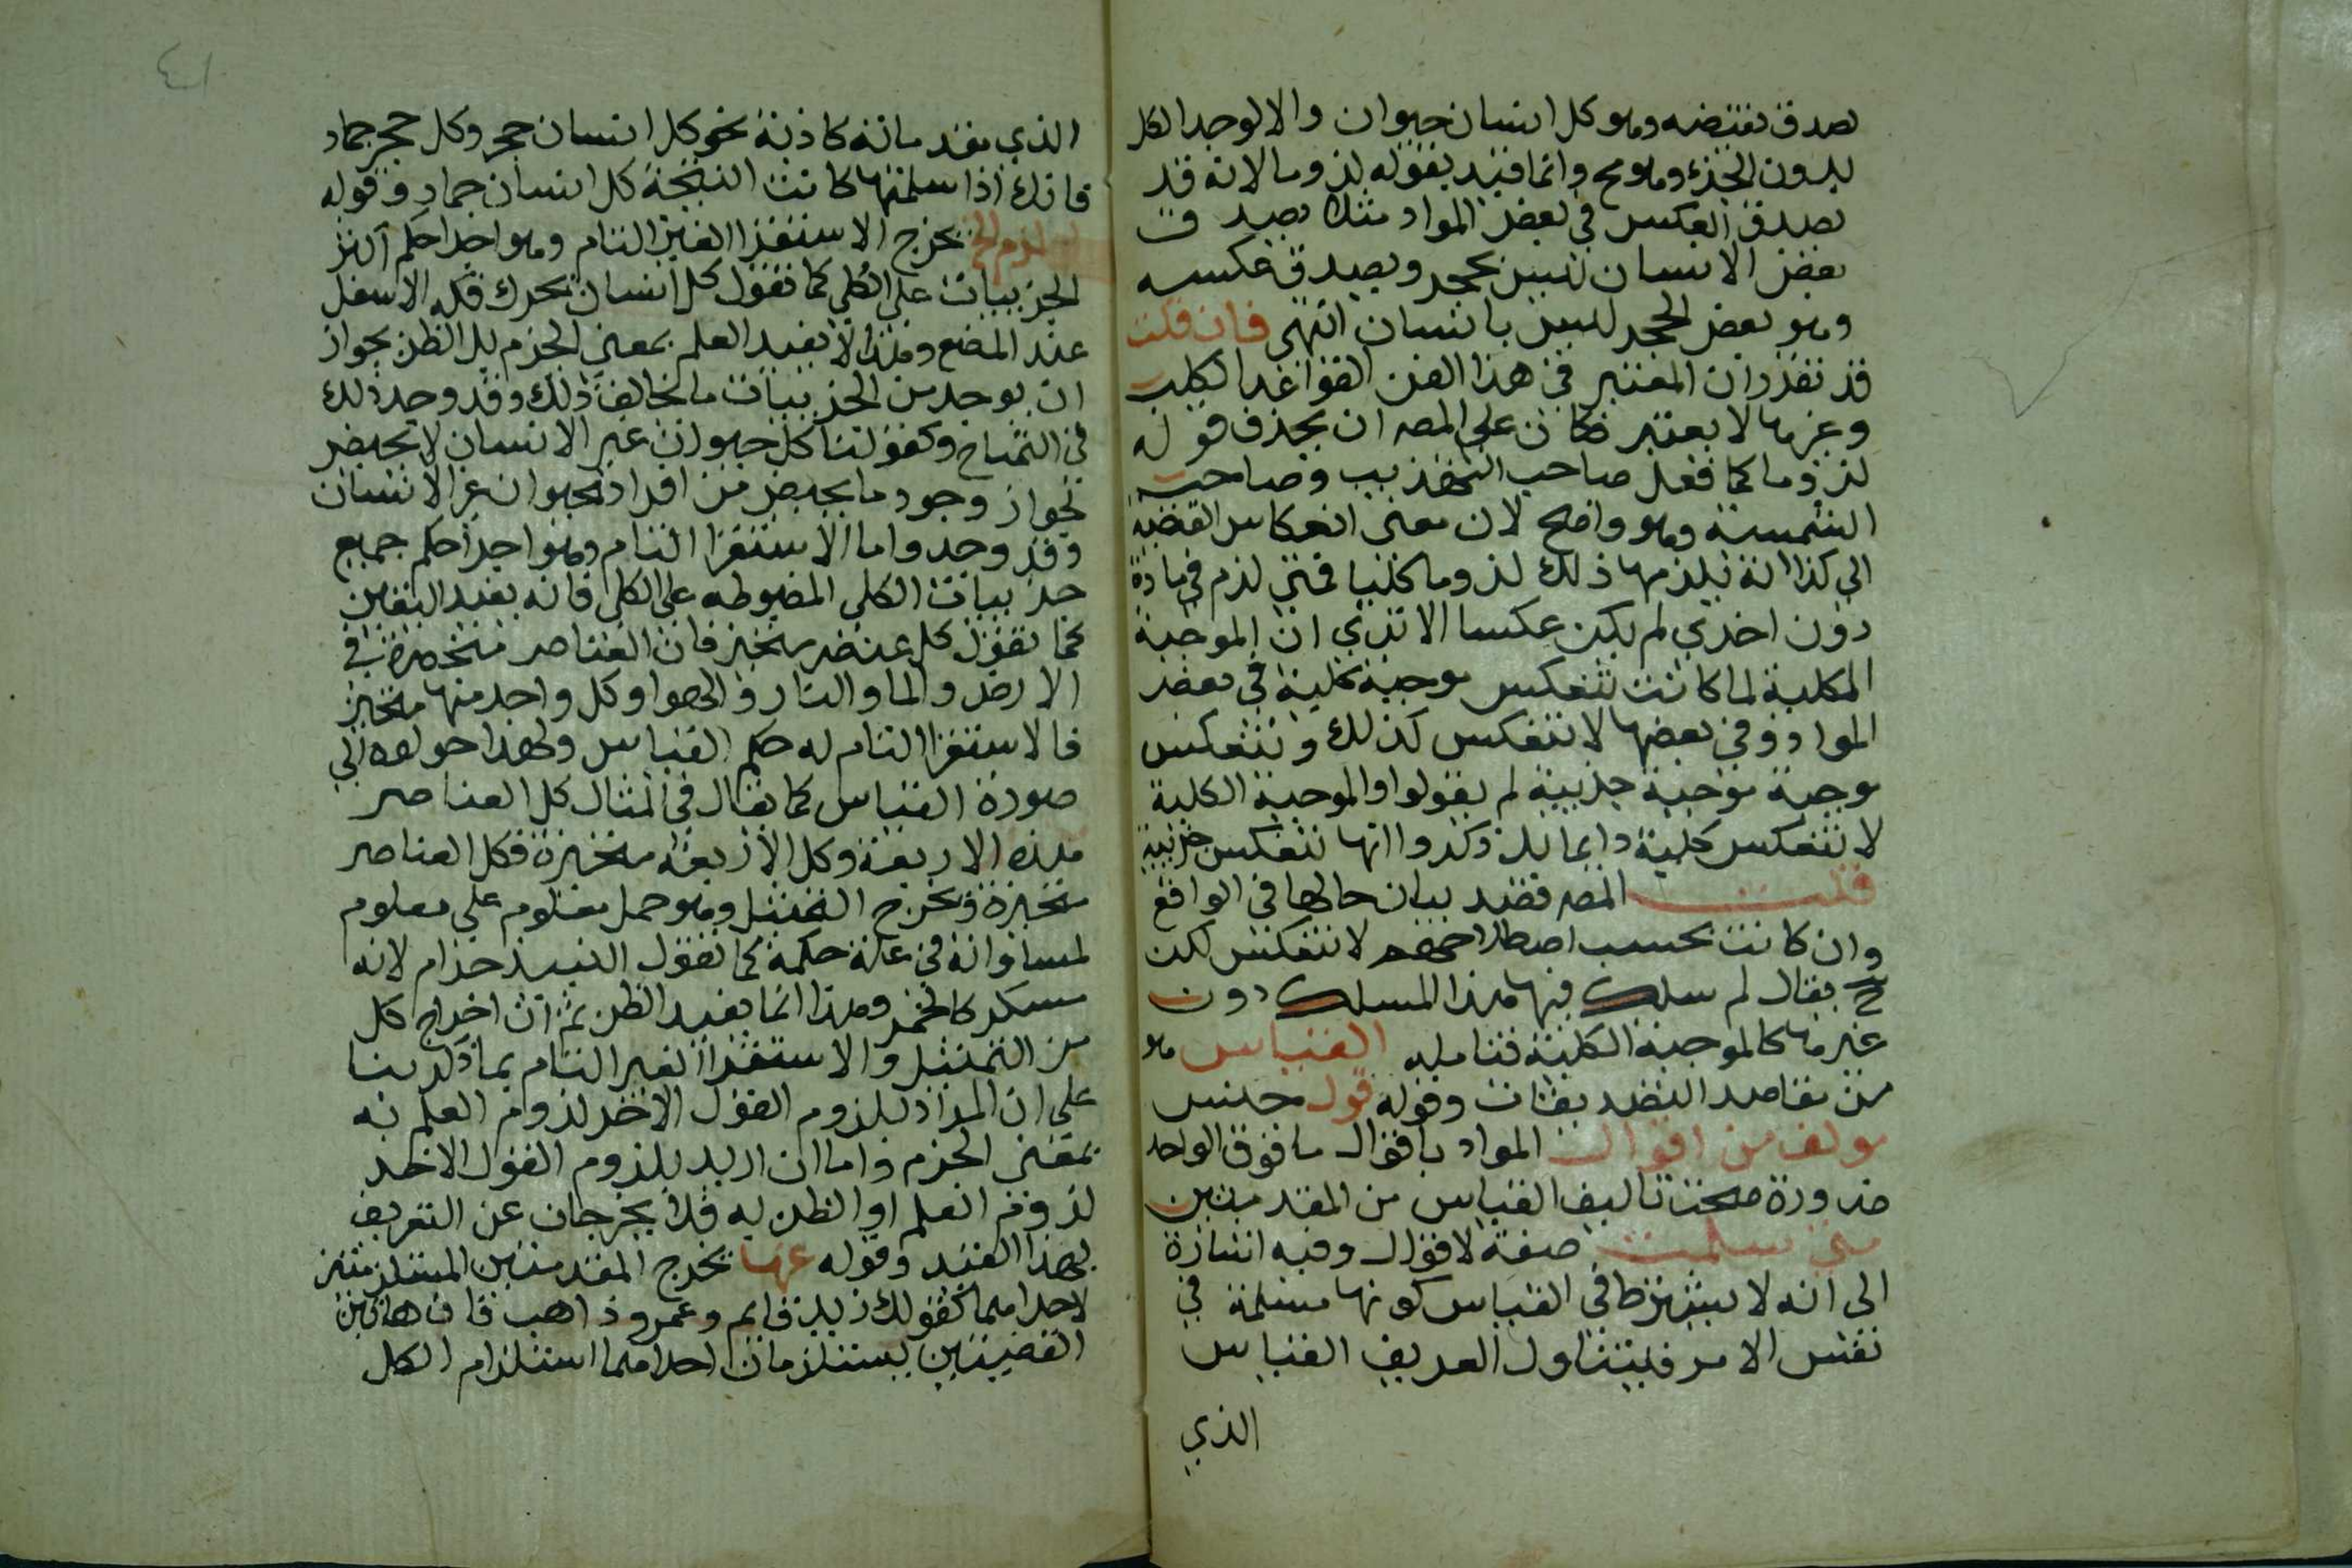 لصدق نقيضه وهو كل انسان حيوان والا لوجد الكل
بدون الجزء وهو مح وانما قيد بقوله لزوما لانه قد
يصدق العكس في بعض المواد مثلا يصدق
بعض الانسان ليس بحجر ويصدق عكسه
وهو بعض الحجر ليس بانسان انتهى فان قلت
قد تقرر ان المعتبر في هذا الفن القواعد الكلية
وغيرها لا يعتبر فكان على المصه ان يحذف قوله
لزوما كما فعل صاحب التهذيب وصاحب
الشمسية وهو واضح لان معنى انعكاس القضية
الى كذا انه يلزمها ذلك لزوما كليا فمتى لزم في مادة
دون اخرى لم يكن عكسا الا ترى ان الموجبة
الكلية لما كانت تنعكس موجبة كلية في بعض
المواد وفي بعضها لا تنعكس كذلك وتنعكس
موجبة موجبة جزيية لم يقولوا والموجبة الكلية
لا تنعكس كلية دايما بل ذكروا انها تنعكس جزيية
قلت المصه قصد بيان حالها في الواقع
وان كانت بحسب اصطلاحهم لا تنعكس لكن
ح يقال لم سلك فيها هذا المسلك دون
غيرها كالموجبة الكلية فتامله القياس هو
من مقاصد التصديقات وقوله قول جنس
مولف من اقوال المراد باقوال ما فوق الواحد
ضرورة صحت تاليف القياس من المقدمتين
متى سلمت صفة لاقوال وفيه اشارة
الى انه لا يشترط في القياس كونها مسلمة في
نفس الامر فليتناول التعريف القياس
الذي
٤١
الذي مقدماته كاذبة نحو كل انسان حجر وكل حجر جماد
فانك اذا سلمتها كانت النتيجة كل انسان جماد وقوله
لزم الخ يخرج الاستقرا الغير التام وهو اجرا حكم اكثر
الجزييات على الكلي كما تقول كل انسان يحرك فكه الاسفل
عند المضغ وهذا لا يفيد العلم بمعنى الجزم بل الظن بجواز
ان يوجد من الجزييات ما يخالف ذلك وقد وجد ذلك
في التمساح وكقولنا كل حيوان غير الانسان لا يحيض
لجواز وجود ما يحيض من افراد الحيوان غير الانسان
وقد وجد واما الاستقرا التام وهو اجرا حكم جميع
جزييات الكلي المضبوطه على الكلي فانه يفيد اليقين
كما تقول كل عنصر متحيز فان العناصر منحصرة في
الارض والما والنار والهوا وكل واحد منها متحيز
فالاستقرا التام له حكم القياس ولهذا حولوه الى
صورة القياس كما يقال في المثال كل العناصر
هذه الاربعة وكل الاربعة متحيزة فكل العناصر
متحيزة ويخرج التمثيل وهو حمل معلوم على معلوم
لمساواته في علة حكمه كما تقول النبيذ حرام لانه
مسكر كالخمر وهذا انما يفيد الظن ثم ان اخراج كل
من التمثيل والاستقرا الغير التام بما ذكر بنا
على ان المراد بلزوم القول الاخر لزوم العلم به
بمعنى الجزم واما ان اريد بلزوم القول الاخر
لزوم العلم او الظن به فلا يخرجان عن التعريف
بهذا القيد وقوله عنها يخرج المقدمتين المستلزمتين
لاحداهما كقولك زيد قايم وعمرو ذاهب فان هاتين
القضيتين يستلزمان احداهما استلزام الكل